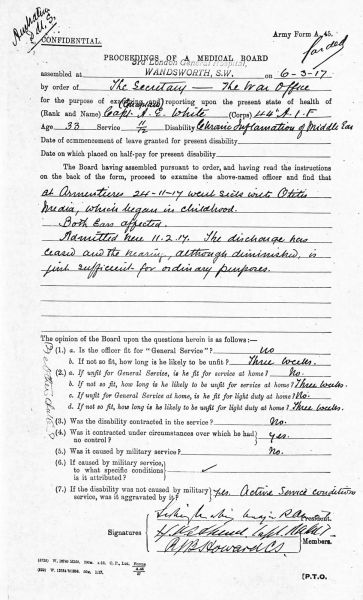 Army Form A. 45.
CONFIDENTIAL.
PROCEEDINGS OF A MEDICAL BOARD
3rd London General Hospital,
assembled at WANDSWORTH, S.W. on 6-3-17.
by order of The Secretary — The War Office
for the purpose of examining and reporting upon the present state of health of
(Rank and Name) Capt. A. E. White (Corps) 44th A.I.F
Age 33 Service 11/12 Disability Chronic Inflamation of Middle Ear
Date of commencement of leave granted for present disability
Date on which placed on half-pay for present disability
The Board having assembled pursuant to order, and having read the instructions
on the back of the form, proceed to examine the above-named officer and find that
at Armentieres 24-11-17 went sick with Otitis
Media, which began in childhood.
Both Ears affected.
Admitted here 11.2.17. The discharge has
ceased and the hearing, although diminished, is
just sufficient for ordinary purposes.
The opinion of the Board upon the questions herein is as follows:—
(1.) a. Is the officer fit for "General Service"? no
b. If not so fit, how long is he likely to be unfit? Three weeks.
(2.) a. If unfit for General Service, is he fit for service at home? No.
b. If not so fit, how long is he likely to be unfit for service at home? Three weeks
c. If unfit for General Service at home, is he fit for light duty at home? No.
d. If not so fit, how long is he likely to be unfit for light duty at home? Three weeks.
(3.) Was the disability contracted in the service? No.
(4.) Was it contracted under circumstances over which he had no control? yes.
(5.) Was it caused by military service? No.
(6.) If caused by military service, to what specific conditions is it attributed? ✓
(7.) If the disability was not caused by military service, was it aggravated by it? yes. Active Service conditions
President.
Signatures
Members.
[P.T.O.